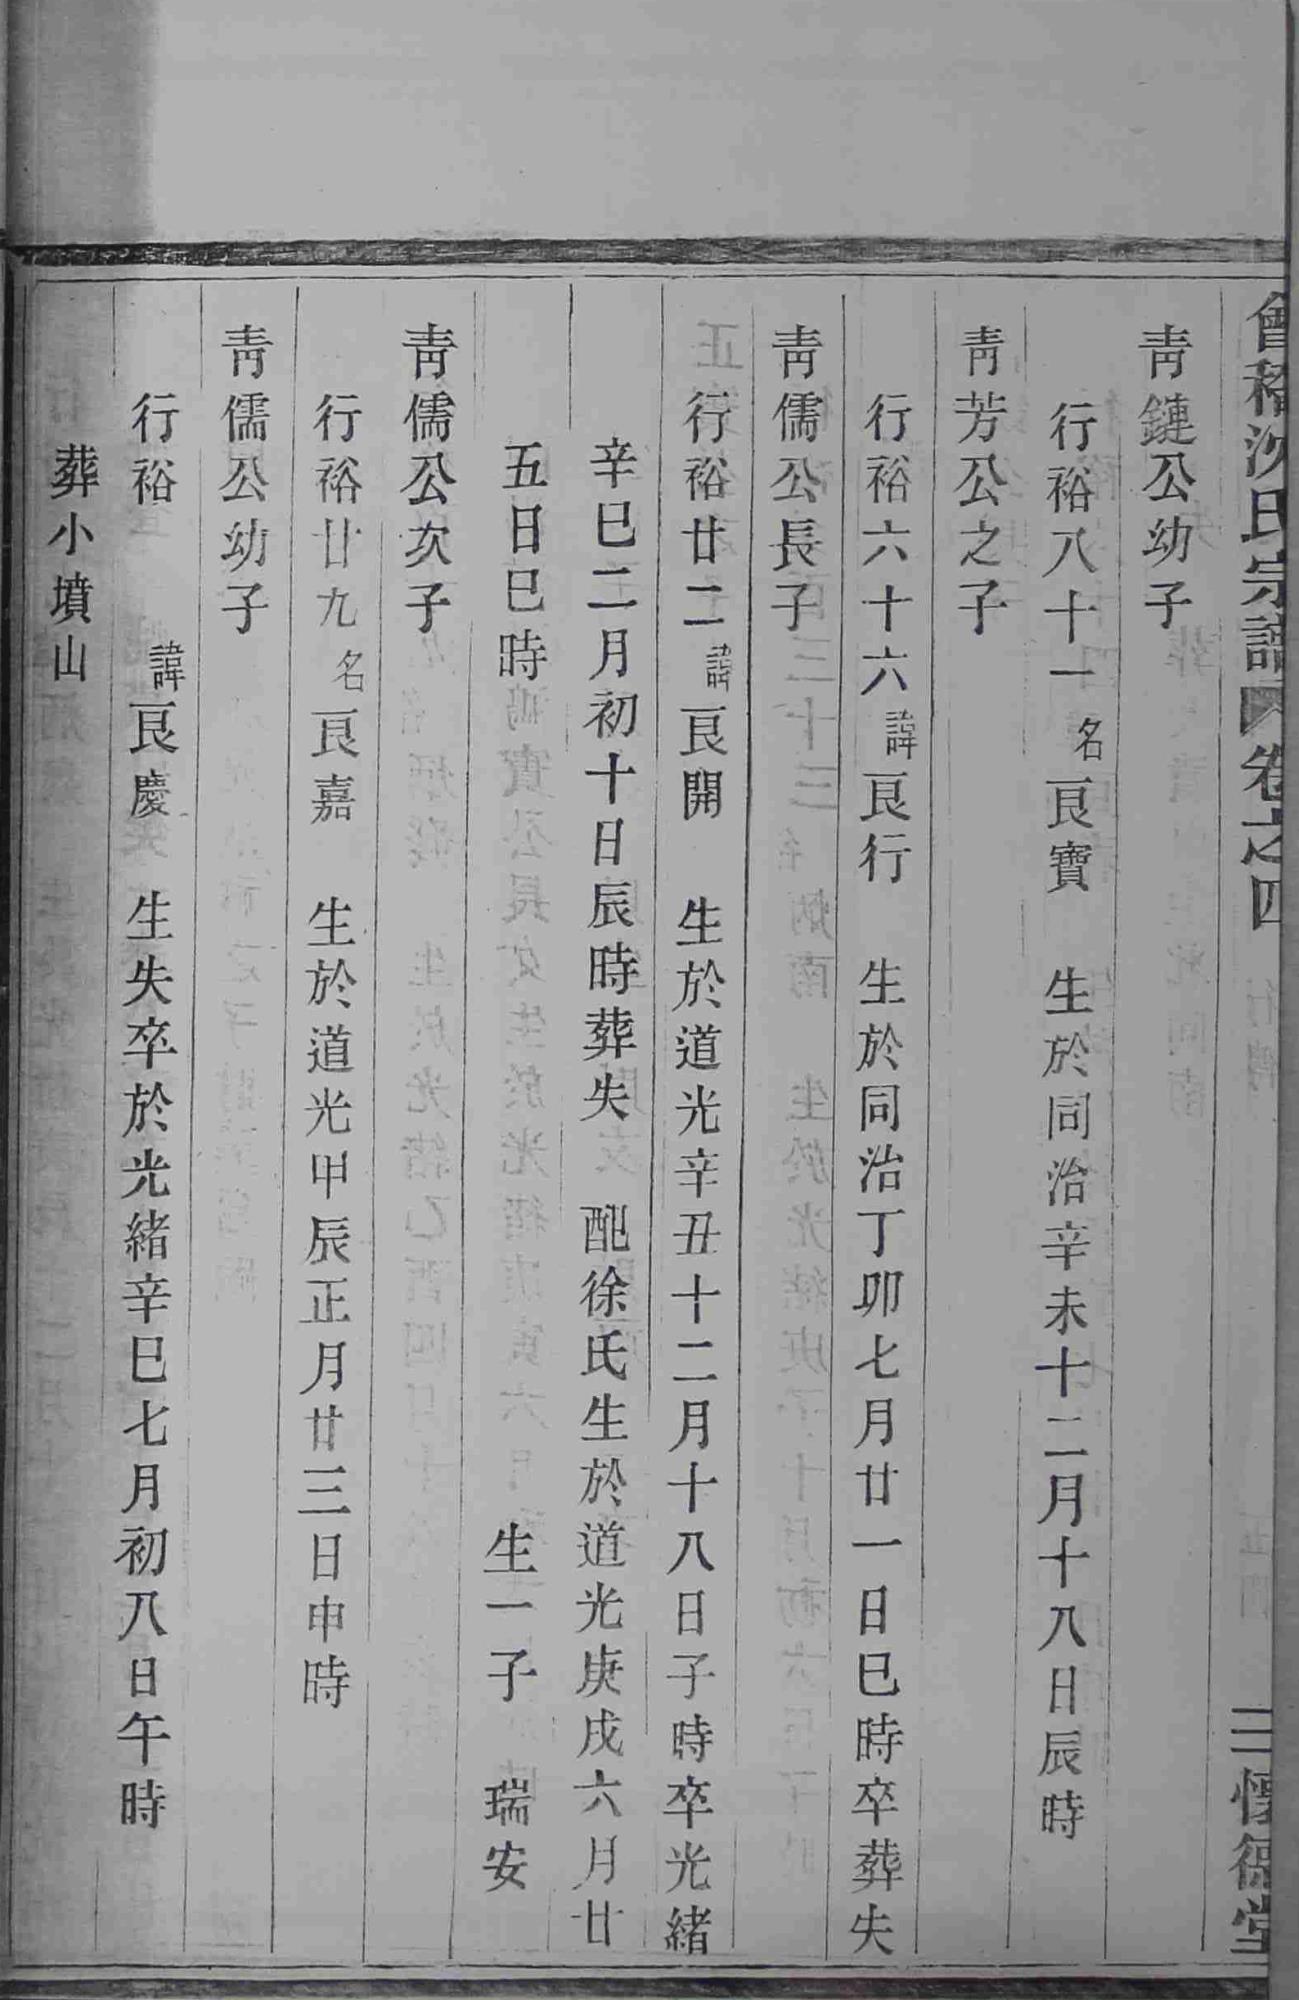 會稽沈氏宗譜 卷之四 二 懷德堂
靑鏈公幼子
行裕八十一名㫰寶 生於同治辛未十二月十八日辰時
靑芳公之子
行裕六十六諱㫰行 生於同治丁卯七月廿一日巳時卒葬失
靑儒公長子
行裕廿二諱㫰開 生於道光辛丑十二月十八日子時卒光緒
辛巳二月初十日辰時葬失 配徐氏生於道光庚戌六月廿
五日巳時 生一子 瑞安
靑儒公次子
行裕廿九名㫰嘉 生於道光甲辰正月廿三日申時
靑儒公幼子
行裕 諱㫰慶 生失卒於光緒辛巳七月初八日午時
葬小墳山